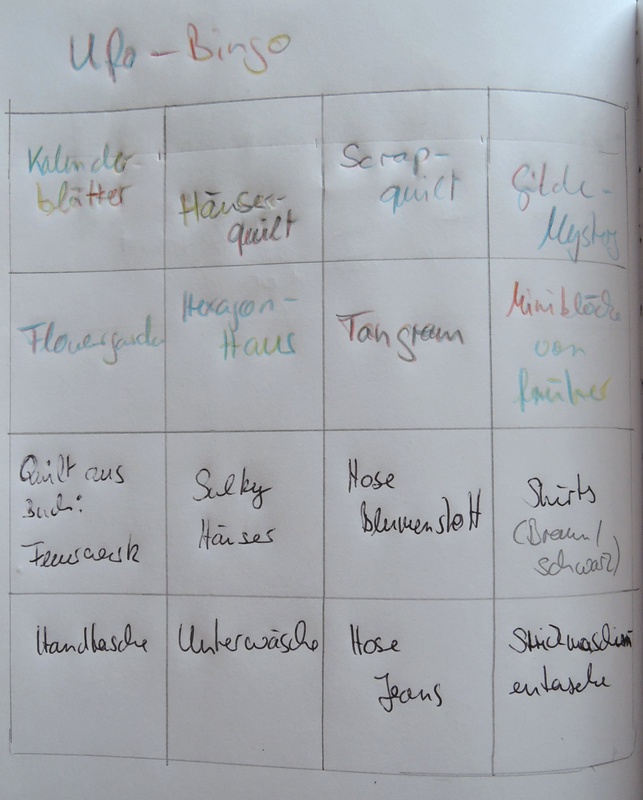 Ufo-Bingo
Kalender-
blätter
Häuser-
quilt
Scrap-
quilt
Gilde-
Mystery
Flowergarden
Hexagon-
Haus
Tangram
Miniblöcke
von
früher
Quilt aus
Buch:
Feuerwerk
Sulky
Häuser
Hose
Blumenstoff
Shirts
(Braun/
schwarz)
Handtasche
Unterwäsche
Hose
Jeans
Strickmaschin
entasche